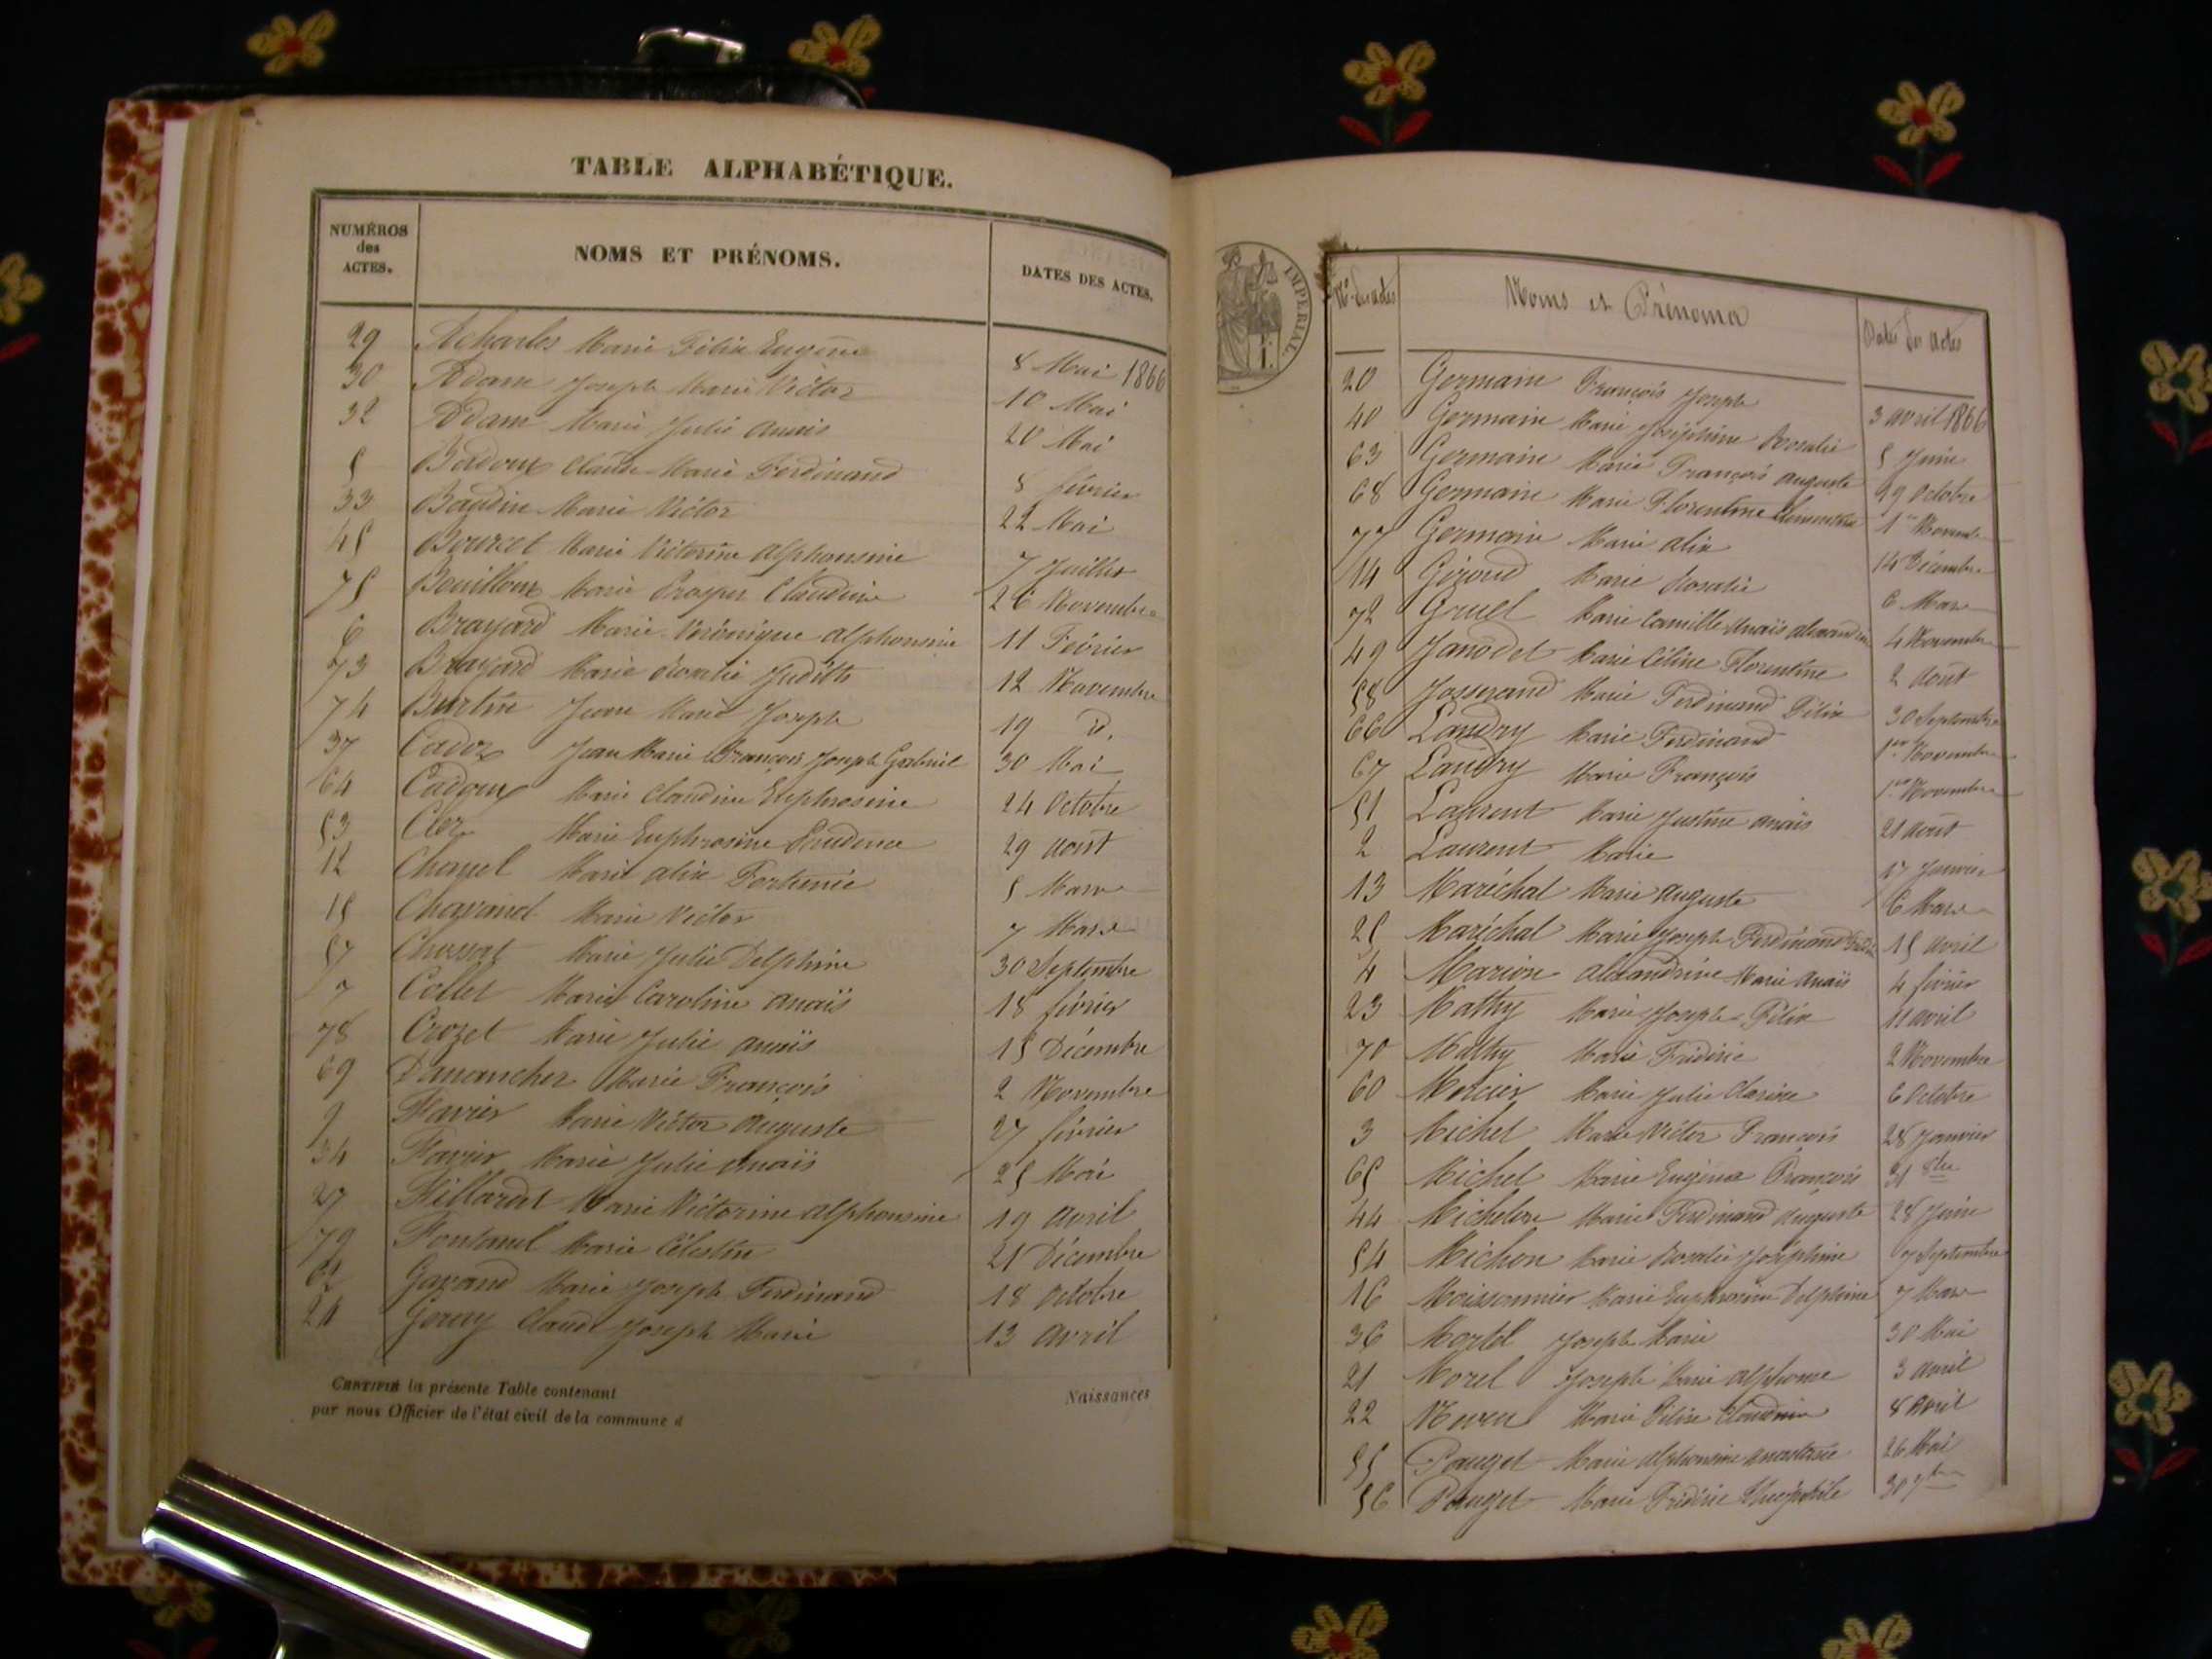 TABLE ALPHABÉTIQUE.
NUMÉROS des ACTES.
NOMS ET PRÉNOMS.
DATES DES ACTES.
29 Acharles Marie Félix Eugène 8 Mai 1866
30 Adam Joseph Marie Victor 10 Mai
32 Adam Marie Julie Anaïs 20 Mai
5 Badoux Claude Marie Ferdinand 8 février
33 Baudin Marie Victor 22 Mai
45 Bourcet Marie Victorine Alphonsine 7 Juillet
75 Bouilloux Marie Prosper Claudine 26 Novembre
6 Brayard Marie Véronique Alphonsine 11 Février
73 Brayard Marie Rosalie Judith 12 Novembre
74 Burtin Jean Marie Joseph 19 d.
37 Cadoz Jean Marie François Joseph Gabriel 30 Mai
64 Cadoux Marie Claudine Euphrosine 24 Octobre
53 Cler Marie Euphrosine Prudence 29 Août
12 Chanel Marie Alix Fortunée 5 Mars
15 Chavand Marie Victor 7 Mars
57 Chossat Marie Julie Delphine 30 Septembre
7 Collet Marie Caroline Anaïs 18 février
78 Crozet Marie Julie Anaïs 15 Décembre
69 Danancher Marie François 2 Novembre
9 Favier Marie Victor Auguste 27 février
34 Favier Marie Julie Anaïs 25 Mai
27 Fillardet Marie Victorine Alphonsine 19 Avril
79 Fontanel Marie Célestin 21 Décembre
62 Gavand Marie Joseph Ferdinand 18 Octobre
24 Gorey Claude Joseph Marie 13 Avril
CERTIFIÉ la présente Table contenant Naissances
par nous Officier de l'état civil de la commune d
IMPÉRIAL.
Nos des actes Noms et Prénoms Dates des Actes
20 Germain François Joseph 3 avril 1866
40 Germain Marie Joséphine Rosalie 5 Juin
63 Germain Marie François Auguste 22 Octobre
68 Germain Marie Florentine Clémentine 1er Novembre
77 Germain Marie Alix 14 Décembre
14 Giroud Marie Rosalie 6 Mars
72 Gruel Marie Camille Anaïs Alexandrine 4 Novembre
49 Janodet Marie Céline Florentine 2 Août
58 Josserand Marie Ferdinand Félix 30 Septembre
66 Landry Marie Ferdinand 1er Novembre
67 Landry Marie François 1er Novembre
51 Laurent Marie Justine Anaïs 21 Août
2 Laurent Marie 17 Janvier
13 Maréchal Marie Auguste 6 Mars
25 Maréchal Marie Joseph Ferdinand 15 avril
4 Marion Alexandrine Marie Anaïs 4 février
23 Mathy Marie Joseph Félix 11 avril
70 Mathy Marie Frédéric 2 Novembre
60 Mercier Marie Julie Clarisse 6 Octobre
3 Michel Marie Victor François 28 Janvier
65 Michel Marie Eugène François 31 8bre
44 Michelon Marie Ferdinand Auguste 28 Juin
54 Michon Marie Rosalie Joséphine 07 Septembre
16 Moissonnier Marie Euphrosine Delphine 7 Mars
36 Mortel Joseph Marie 30 Mai
21 Morel Joseph Marie Alphonse 3 avril
22 Marie Félix Claudine 8 Avril
55 Pauget Marie Alphonsine Anastasie 26
56 Pauget Marie Frédéric Théophile 30 7bre